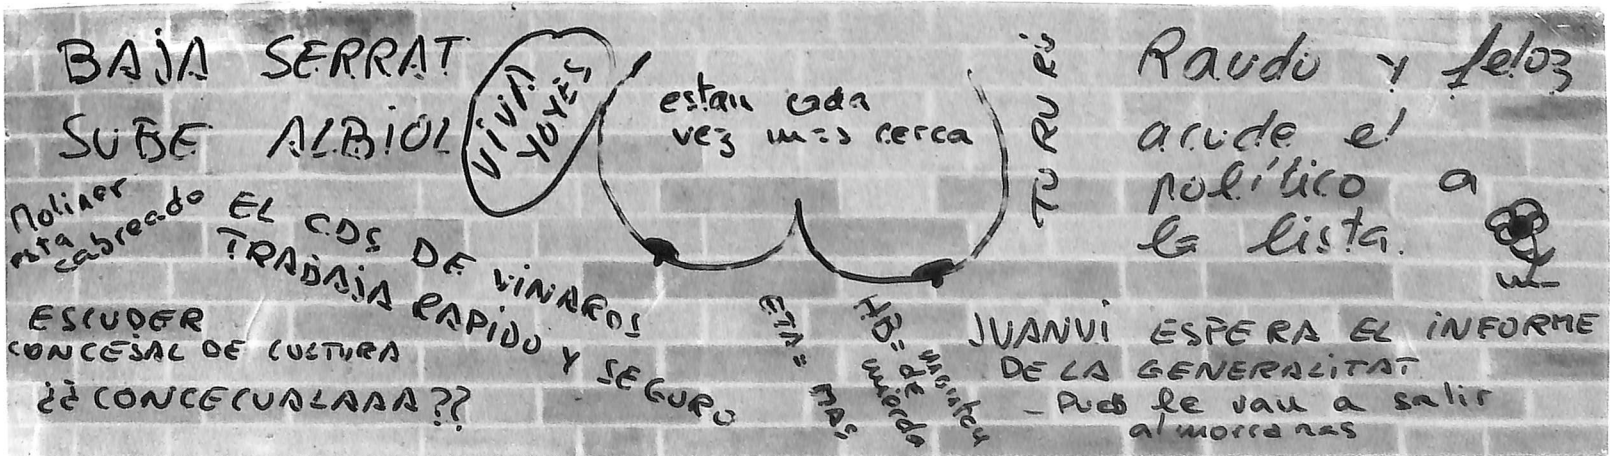 BAJA SERRAT
SUBE ALBIOL
VIVA
YOYES
estan cada
vez mas cerca
TU RU RÚ
Raudo y feloz
acude el
político a
la lista.
Moliner
esta
cabreado
EL CDS DE VINAROS
TRABAJA RAPIDO Y SEGURO
ESCUDER
CONCESAL DE CULTURA
¿¿CONCECUALAAA??
ETA= MAS
HB= monton
de
mierda
JUANVI ESPERA EL INFORME
DE LA GENERALITAT
- Pues le van a salir
almorranas